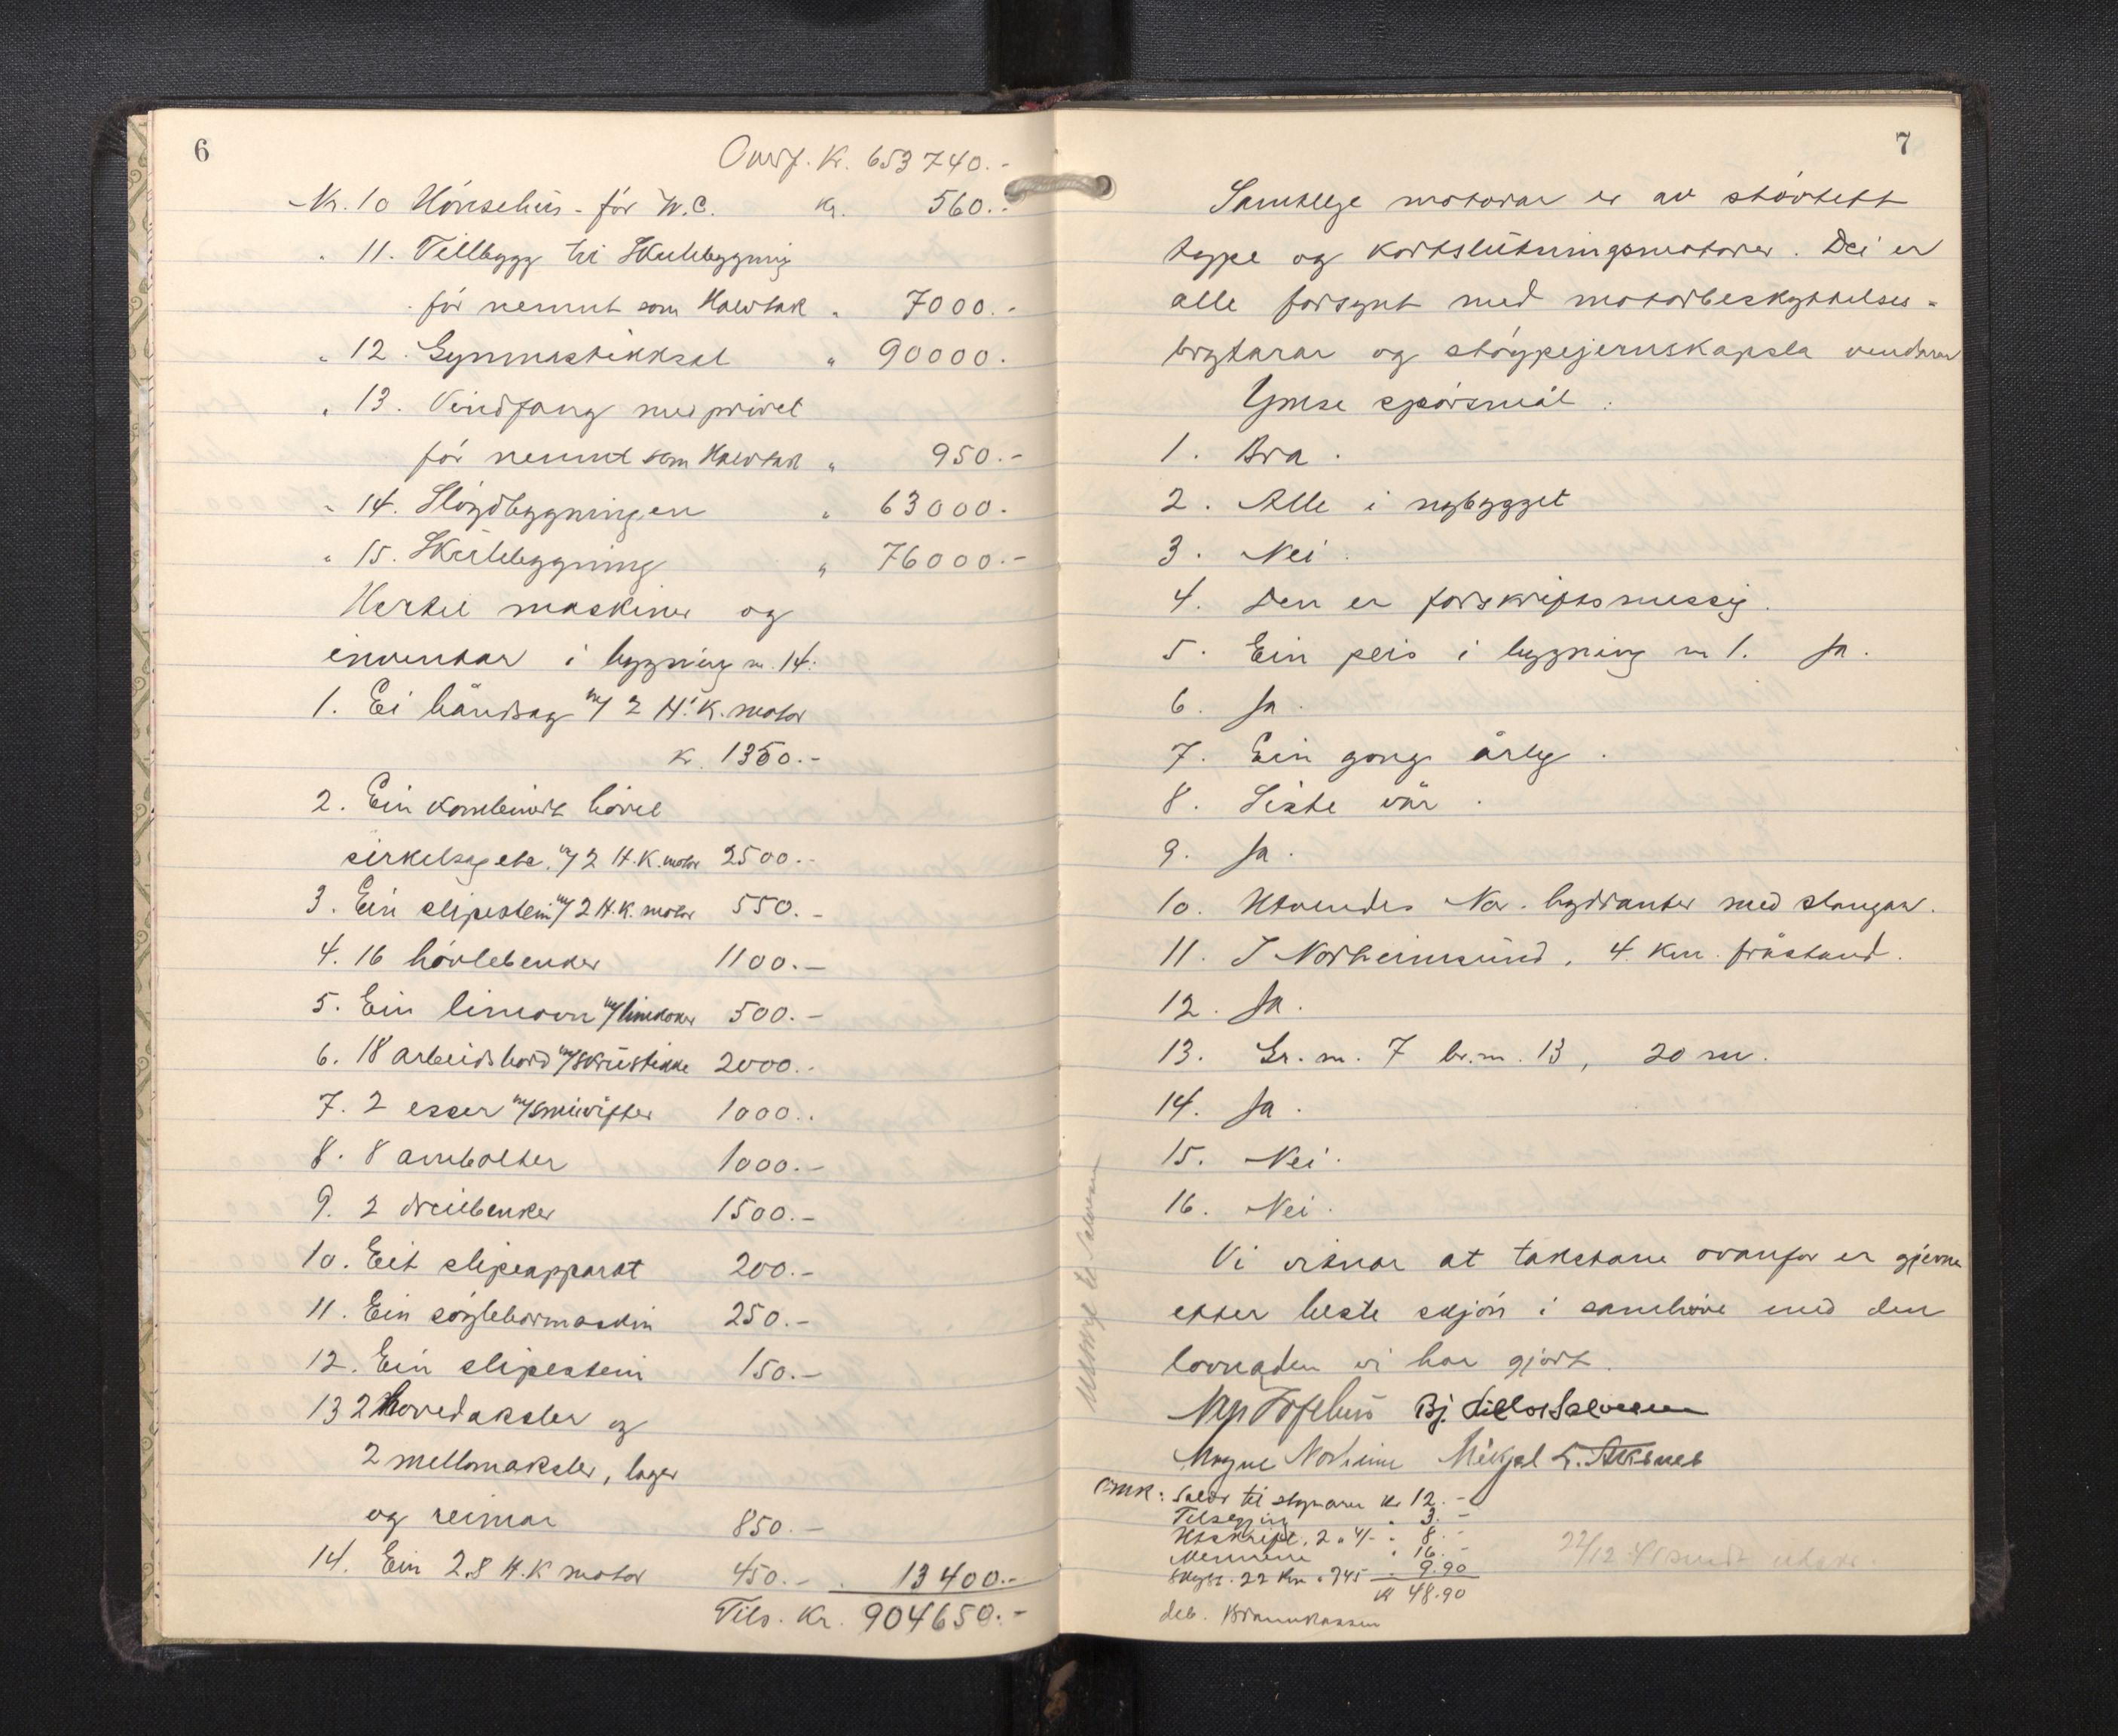 6
Overf. Kr. 653740.-
Nr. 10 Hönsehus - før W.C. Kr. 560.-
" 11. Tillbygg til Skulebygning
før nemnt som Halvtak " 7000.-
" 12. Gymnastikksal " 90000.
" 13. Vindfang med privet
før nemnt som Halvtak " 950.-
" 14. Sløydbygningen " 63000.
" 15. Skulebygning " 76000.-
Hertil maskiner og
inventar i bygning nr. 14:
1. Ei båndsag m/ 2 H.K. motor
kr. 1350.-
2. Ein kombinert hövel
sirkelsag etc. m/ 2 H.K. motor 2500.-
3. Ein slipestein m/ 2 H.K. motor 550.-
4. 16 hövlebenker 1100.-
5. Ein limovn m/ limkoker 500.-
6. 18 arbeidsbord m/ skrustikke 2000.-
7. 2 esser m/ smivifter 1000.-
8. 8 ambolter 1000.-
9. 2 dreiebenker 1500.-
10. Eit slipeapparat 200.-
11. Ein söyleboremaskin 250.-
12. Ein slipestein 150.-
13 2 hovedaksler og
2 mellomaksler, lager
og reimar 850.-
14. Ein 2.8 H.K motor 450.- . 13400.-
Tils. Kr. 904650.-
7
Samtlege motorar er av støvtett
type og kortslutningsmotorer. Dei er
alle forsynt med motorbeskyttelses-
brytarar og støypejernskapsla vendarar
Ymse spørsmål :
1. Bra.
2. Alle i nybygget
3. Nei.
4. Den er forskriftsmessig.
5. Ein peis i bygning nr 1. Ja.
6. Ja.
7. Ein gong årleg.
8. Siste vår.
9. Ja.
10. Utvendes Nor. hydranter med slangar.
11. I Norheimsund, 4 km. fråstand.
12. Ja.
13. Gr. nr. 7 br. nr. 13, 20 m.
14. Ja.
15. Nei.
16. Nei.
Vi vitnar at takstane ovanfor er gjevne
etter beste skjön i samhöve med den
lovnaden vi har gjort.
Tofthus Bj.
Magne Norheim Mikjel
Omk: Salær til Kr 12.-
Tilsegjing " 3.-
Utskrift, 2 a 4/- " 8.-
" 16.-
Skyss. 22 km a 745 " 9.90
Kr 48.90
deb. Brannkassen
22/12 41 sendt